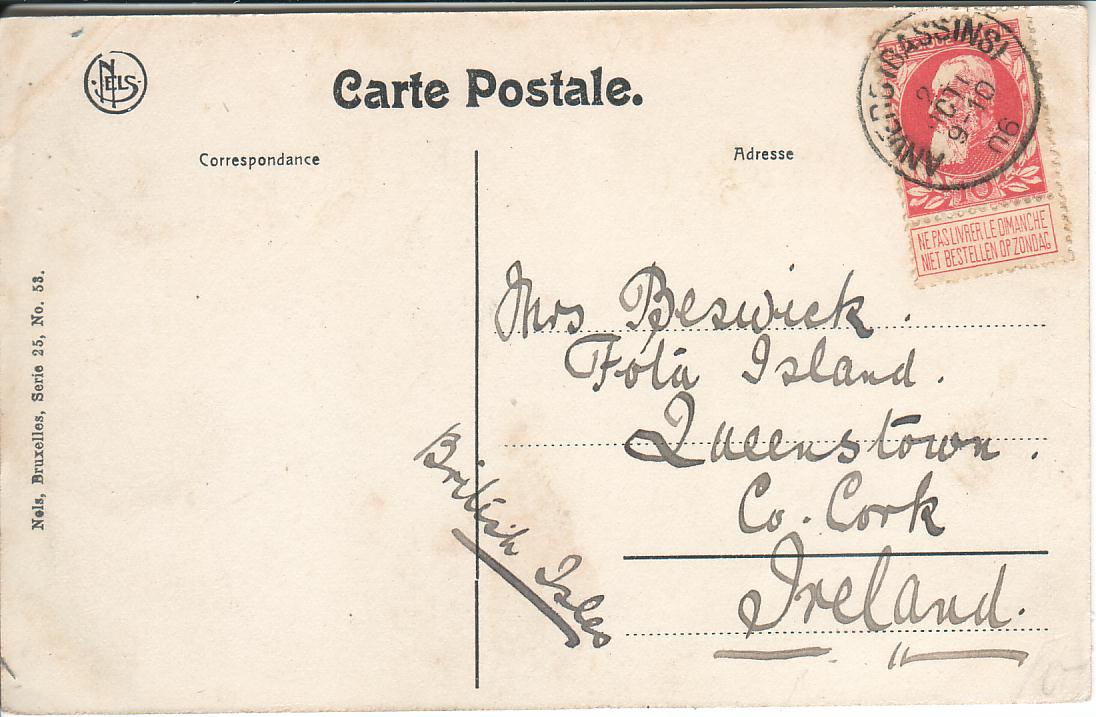 NELS
Carte Postale.
Correspondance
Adresse
ANVERS (BASSINS)
9-10
06
10
NE PAS LIVRER LE DIMANCHE
NIET BESTELLEN OP ZONDAG
Mrs Beswick.
Fota Island.
Queenstown.
Co. Cork
Ireland.
British Isles
Nels, Bruxelles, Serie 25, No. 53.